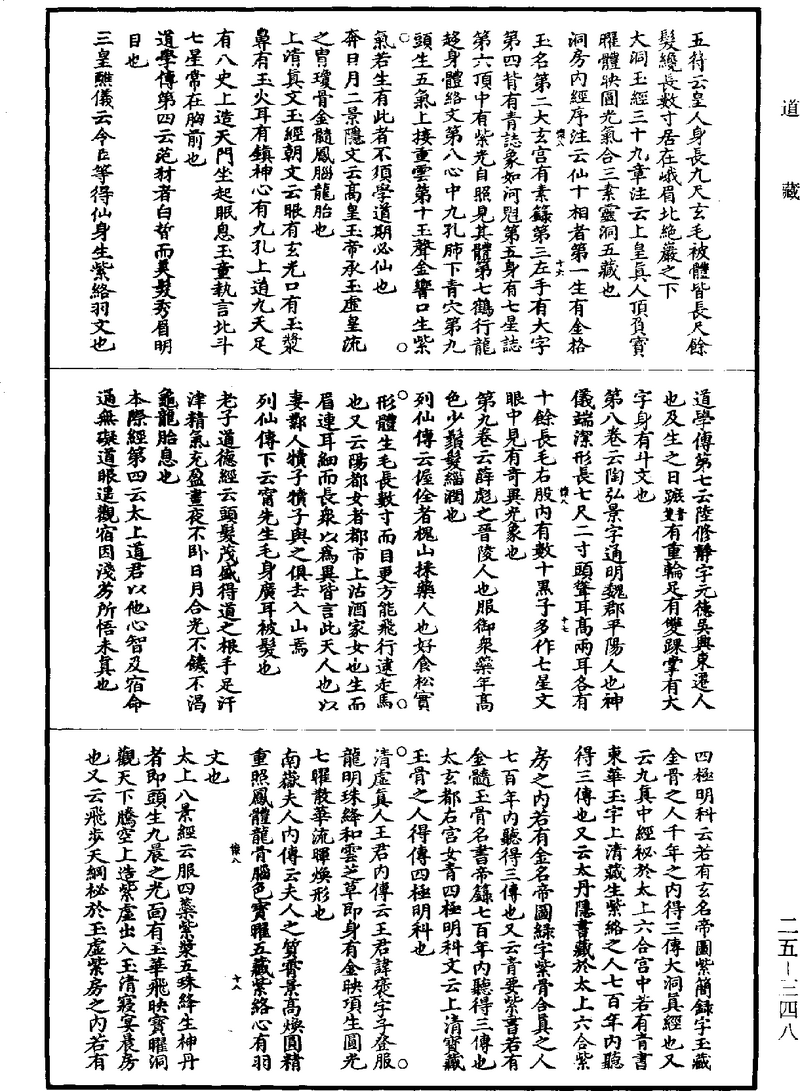 道藏
五符云皇人身長九尺玄毛被體皆長尺餘
髮纔長數寸居在峨眉北絶巖之下
大洞玉經三十九章注云上皇真人頂負寶
曜體映圓光氣合三素靈洞五藏也
洞房内經序注云仙十相者第一生有金格
玉名第二大玄宫有素錄第三左手有大字
第四背有青誌象如河魁第五身有七星誌
第六頂中有紫光自照見其體第七鶴行龍
趍身體絡文第八心中九孔肺下青穴第九
頭生五氣上接重雲第十玉聲金響口生紫
氣若生有此者不須學道期必仙也
奔日月二景隱文云高皇玉帝承玉虛皇流
之胄瓊骨金髓鳳腦龍胎也
上清真文玉經朝文云眼有玄光口有玉漿
鼻有玉火耳有鎮神心有九孔上道九天足
有八史上造天門坐起眠息玉童執言北斗
七星常在胸前也
道學傳第四云范材者白皙而美鬚秀眉明
目也
三皇醮儀云今臣等得仙身生紫絡羽文也
道學傳第七云陸修靜字元德吳興東遷人
也及生之日蹠雙有重輪足有雙踝掌有大
字身有斗文也
第八卷云陶弘景字通明魏郡平陽人也神
儀端潔形長七尺二寸頭聳耳高兩耳各有
十餘長毛右股内有數十黑子多作七星文
眼中見有奇異光象也
第九卷云薛彪之晉陵人也服御衆藥年高
色少鬚髮緇潤也
列仙傳云偓佺者槐山採藥人也好食松實
形體生毛長數寸而目更方能飛行逮走馬
也又云陽都女者都市上沽酒家女也生而
眉連耳細而長衆以爲異皆言此天人也以
妻鄴人犢子犢子與之俱去入山焉
列仙傳下云甯先生毛身廣耳被髮也
老子道德經云頭髮茂盛得道之根手足汗
津精氣充盈晝夜不卧日月合光不饑不渴
龜龍胎息也
本際經第四云太上道君以他心智及宿命
通無礙道眼遥觀宿因淺劣所悟未真也
四極明科云若有玄名帝圖紫簡錄字玉藏
金骨之人千年之内得三傳大洞真經也又
云九真中經祕於太上六合宫中若有青書
東華玉宇上清藏生紫絡之人七百年内聽
得三傳也又云太丹隱書藏於太上六合紫
房之内若有金名帝圖綠字紫骨合真之人
七百年内聽得三傳也又云青要紫書若有
金髓玉骨名書帝錄七百年内聽得三傳也
太玄都右宫女青四極明科文云上清寶藏
玉骨之人得傳四極明科也
清虛真人王君内傳云王君諱褒字子登服
龍明珠絳和雲芝草即身有金映項生圓光
七曜散華流暉煥形也
南嶽夫人内傳云夫人之質霄景高煥圓精
重照鳳體龍骨腦色寶曜五藏紫絡心有羽
文也
太上八景經云服四藥紫漿五珠絳生神丹
者即頭生九晨之光面有玉華飛映寶曜洞
觀天下騰空上造紫虛出入玉清寢宴晨房
也又云飛步天綱祕於玉虛紫房之内若有
二五-三四八